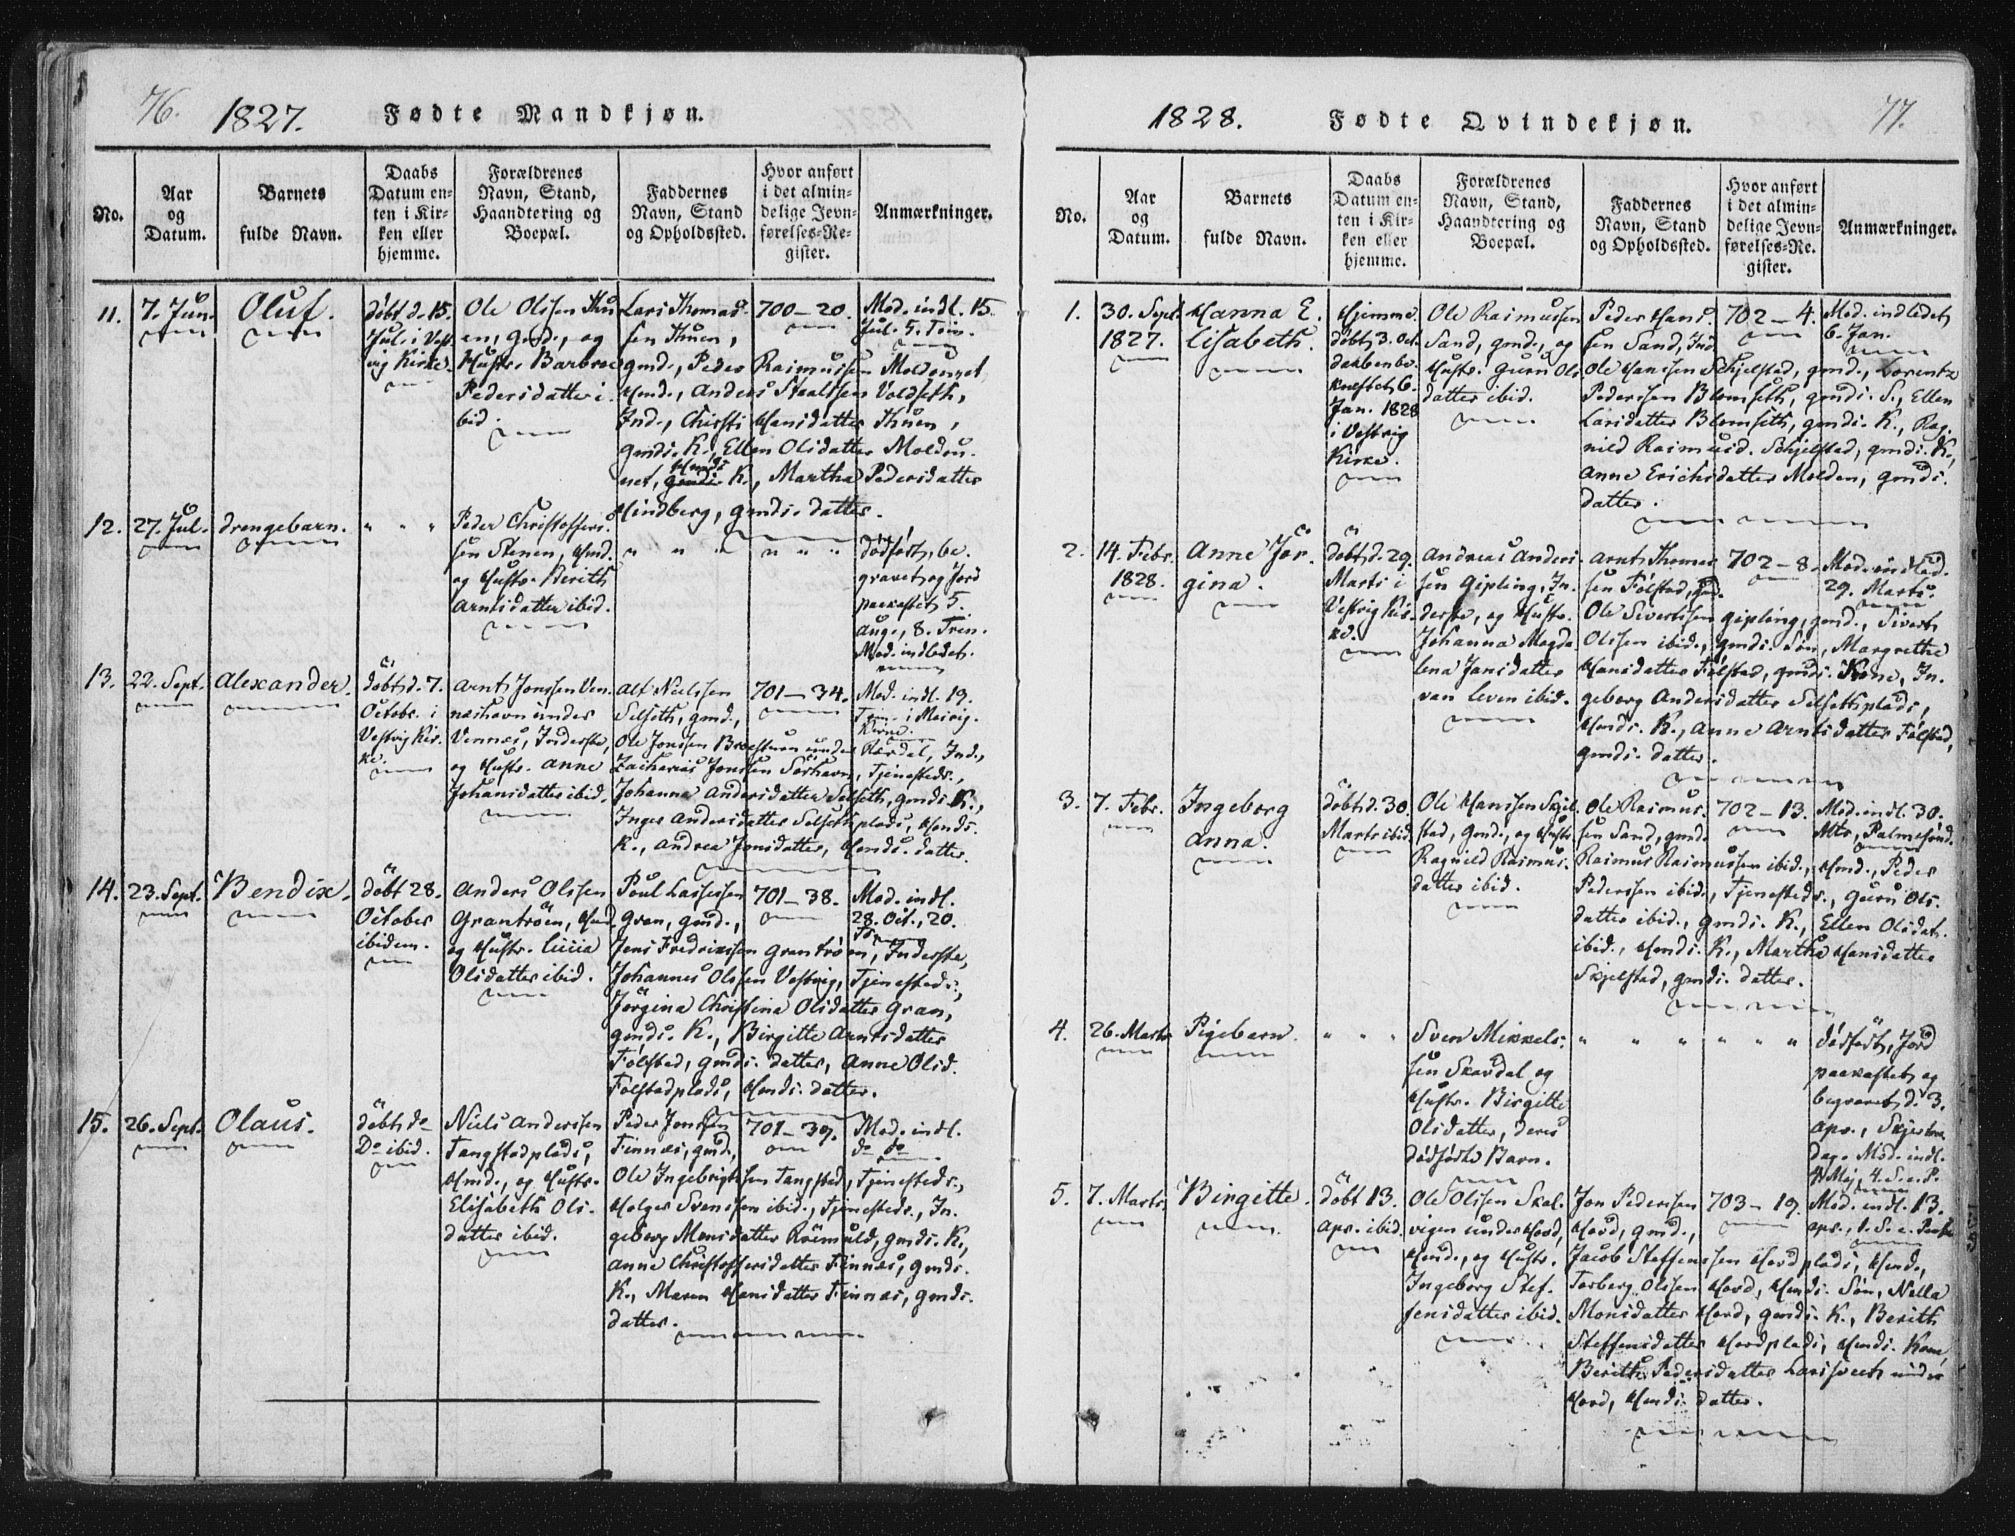 76.
1827.
Fødte Mandkjøn.
No.
Aar
og
Datum.
Barnets
fulde Navn.
Daabs
Datum en-
ten i Kir-
ken eller
hjemme.
Forældrenes
Navn, Stand,
Haandtering og
Boepæl.
Faddernes
Navn, Stand
og Opholdssted.
Hvor anført
i det almin-
delige Jevn-
førelses-Re-
gister.
Anmærkninger.
11.
7. Jun.
Oluf.
döbt d. 15.
Jul. i Vest
vig Kirke.
Ole Olssen Thu
en, gmd., og
Hustr. Barbroe
Pedersdatter i-
bid
Lars Thomas-
sen Thuen,
gmd., Peder Rasmussen Moldeunet,
Hmd., Anders Staalssen Voldseth,
Ind., Christi Hansdatter Thuen,
gmds. K., Ellen Olsdatter Moldeu-
net, Hmds K., Martha Pedersdatter
Hindberg, gmds. datter.
700-20.
Mod. indl. 15
Jul. 5. Trin.
12.
27. Jul.
drengebarn.
" " "
Peder Christoffers-
sen Stenen, Hmd.
og Hustr. Berith
Arntsdatter ibid.
" " " " " "
dödfödt, be-
gravet og Jord
paakastet 5.
Aug., 8. Trin.
Mod. indledet.
13.
22. Sept.
Alexander.
döbt d. 7.
Octobr. i
Vestvig Kir-
ke.
Arnt Jonssen Ven-
neshavn under
Vennes, Inderste,
og Hustr. Anne
Johansdatter ibid.
Alf Nielssen
Selseth, gmd.,
Ole Jonssen under Rårdal, Ind.,
Zacharias Jonssen Sörhavn, Tjenesteds.,
Johanna Andersdatter Selseth, gmds. K.,
Inger Andersdatter Selsethplads, Hmds.
K., Andrea Jonsdatter, Hmds. datter.
701-34.
Mod. indl. 19.
Trin. i
Kirke.
14.
23. Sept.
Bendix.
döbt 28.
October
ibidem.
Anders Olssen
Grantröen, Hmd.
og Hustr. Lucia
Olsdatter ibid.
Poul Lassessen
Gran, gmd.,
Jens Fredrikssen Grantröen, Inderste,
Johannes Olssen Vestvig, Tjenesteds.,
Jörgina Christina Olsdatter Gran,
gmds. K., Birgitte Arntsdatter
Folstad, gmds. datter, Anne Olsd.
Folstadplads, Hmds. datter.
701-38.
Mod. indl.
28. Oct., 20.
Tr.
15.
26. Sept.
Olaus.
döbt do
Do ibid.
Niels Anderssen
Tangstadplads,
Hmd., og Hustr.
Elisabeth Ols-
datter ibid.
Peder Jonssen
Finnes, gmd.,
Ole Ingebrigtssen Tangstad, Tjenesteds.,
Holger Svenssen ibid., Tjenesteds., In-
geborg Monsdatter Römuld, gmds. K.,
Anne Christoffersdatter Finnes, gmds.
K., Maren Hansdatter Finnes, gmds.
datter.
701-39.
Mod. indl.
do do
1828.
Fødte Qvindekjøn.
77.
No.
Aar
og
Datum.
Barnets
fulde Navn.
Daabs
Datum en-
ten i Kir-
ken eller
hjemme.
Forældrenes
Navn, Stand,
Haandtering og
Boepæl.
Faddernes
Navn, Stand
og Opholdssted.
Hvor anført
i det almin-
delige Jevn-
førelses-Re-
gister.
Anmærkninger.
1.
30. Sept.
1827.
Hanna E-
lisabeth.
Hjemme-
döbt 3. Oct.
daaben be-
kræftet 6.
Jan. 1828
i Vestvig
Kirke.
Ole Rasmussen
Sand, gmd., og
Hustr. Guru Ols
datter ibid.
Peder Hans-
sen Sand, Ind.
Ole Hanssen Schjelstad, gmd., Lorentz
Pederssen Blomseth, gmds. S., Ellen
Larsdatter Blomseth, gmds. K., Rag-
nild Rasmusd. Schjelstad, gmds. K.,
Anne Erichsdatter Molden, gmds.
datter.
702-4.
Mod. indledet
6. Jan.
2.
14. Febr.
1828.
Anne Jör-
gina.
döbt d. 29.
Marts i
Vestvig Kir-
ke.
Andreas Anders-
sen Gipling, In-
derste, og Hustr.
Johanna Magda-
lena Jansdatter
van Leven ibid.
Arnt Thomes-
sen Folstad, gmd.
Ole Sivertssen Gipling, gmd., Sivert
Olssen ibid., gmds. Sön, Margrethe
Hansdatter Folstad, gmds. Kone, In-
geborg Andersdatter Selsethplads,
Hmds. K., Anne Arntsdatter Folstad,
gmds. datter.
702-8.
Mod. indled.
29. Marts.
3.
7. Febr.
Ingeborg
Anna.
döbt d. 30
Marts ibid.
Ole Hanssen Skjel-
stad, gmd., og Hustr.
Ragnild Rasmus-
datter ibid.
Ole Rasmus-
sen Sand, gmd.
Rasmus Rasmussen ibid., Hmd., Peder
Pederssen ibid., Tjenesteds., Guru Ols-
datter ibid., gmds. K., Ellen Olsdat.
ibid., Hmds. K., Martha Hansdatter
Skjelstad, gmds. datter.
702-13.
Mod. indl. 30.
Mts, Palmesönd.
4.
26. Marts
Pigebarn.
" " "
Sven Mikkels-
sen Skardal og
Hustr. Birgitte
Olsdatter, deres
dödfödte Barn.
" " " " " "
dödfödt, Jord
paakastet og
begravet d. 3.
Apr., Skjertors-
dag. Mod. indl.
4 Maj, 4. S. e. P.
5.
7. Marts
Birgitte.
döbt 13.
Apr. ibid.
Ole Olssen Skal-
vigen under Hovd,
Hmd., og Hustr.
Ingeborg Stef-
fensdatter ibid.
Jon Pederssen
Hovd, gmd.,
Jacob Steffenssen Hovdplads, Hmd.,
Torberg Olssen Hovd, Hmds. Sön, Nilla
Monsdatter Hovd, gmds. K., Berith
Steffensdatter Hovdplads, Hmds. Kone,
Berith Pedersdatter under
Hovd, Hmds datter.
703-19.
Mod. indl. 13.
Apr., 1. S. e. Paaske